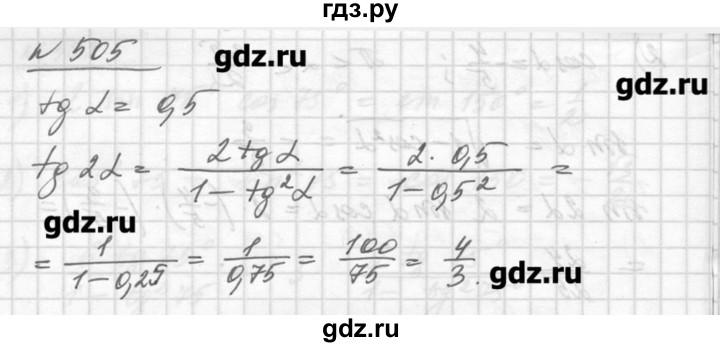 гдз.ру
№ 505
gdz.ru
gdz.ru
tg α = 0,5
tg 2α = 2 tg α / 1 − tg²α = 2 · 0,5 / 1 − 0,5² =
gdz.ru
= 1 / 1 − 0,25 = 1 / 0,75 = 100 / 75 = 4 / 3.
gdz.ru
gdz.ru